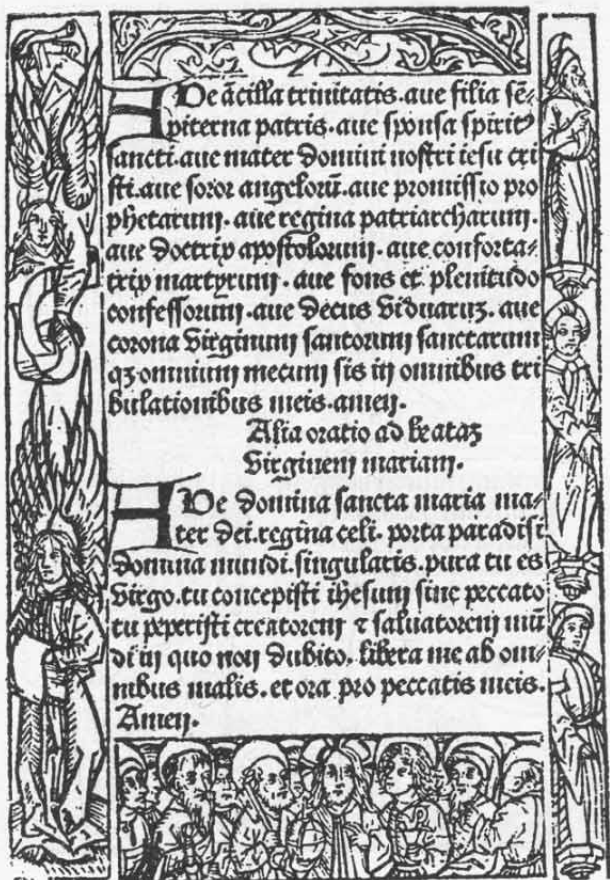 AVe ācilla trinitatis. aue filia sē-
piterna patris. aue sponsa spirit9
sancti. aue mater domini nostri iesu cri
sti. aue soror angelorū. aue promissio pro
phetarum. aue regina patriarcharum.
aue doctrix apostolorum. aue conforta-
trix martyrum. aue fons et plenitudo
confessorum. aue decus viduaruʒ. aue
corona virginum santorum sanctarum
qʒ omnium mecum sis in omnibus tri
bulationibus meis. amen.
Alia oratio ad beataʒ
virginem mariam.
AVe domina sancta maria ma-
ter dei. regina celi. porta paradisi
domina mundi. singularis. pura tu es
virgo. tu concepisti ihesum sine peccato
tu peperisti creatorem ⁊ saluatorem mū
di in quo non dubito. libera me ab om-
nibus malis. et ora pro peccatis meis.
Amen.